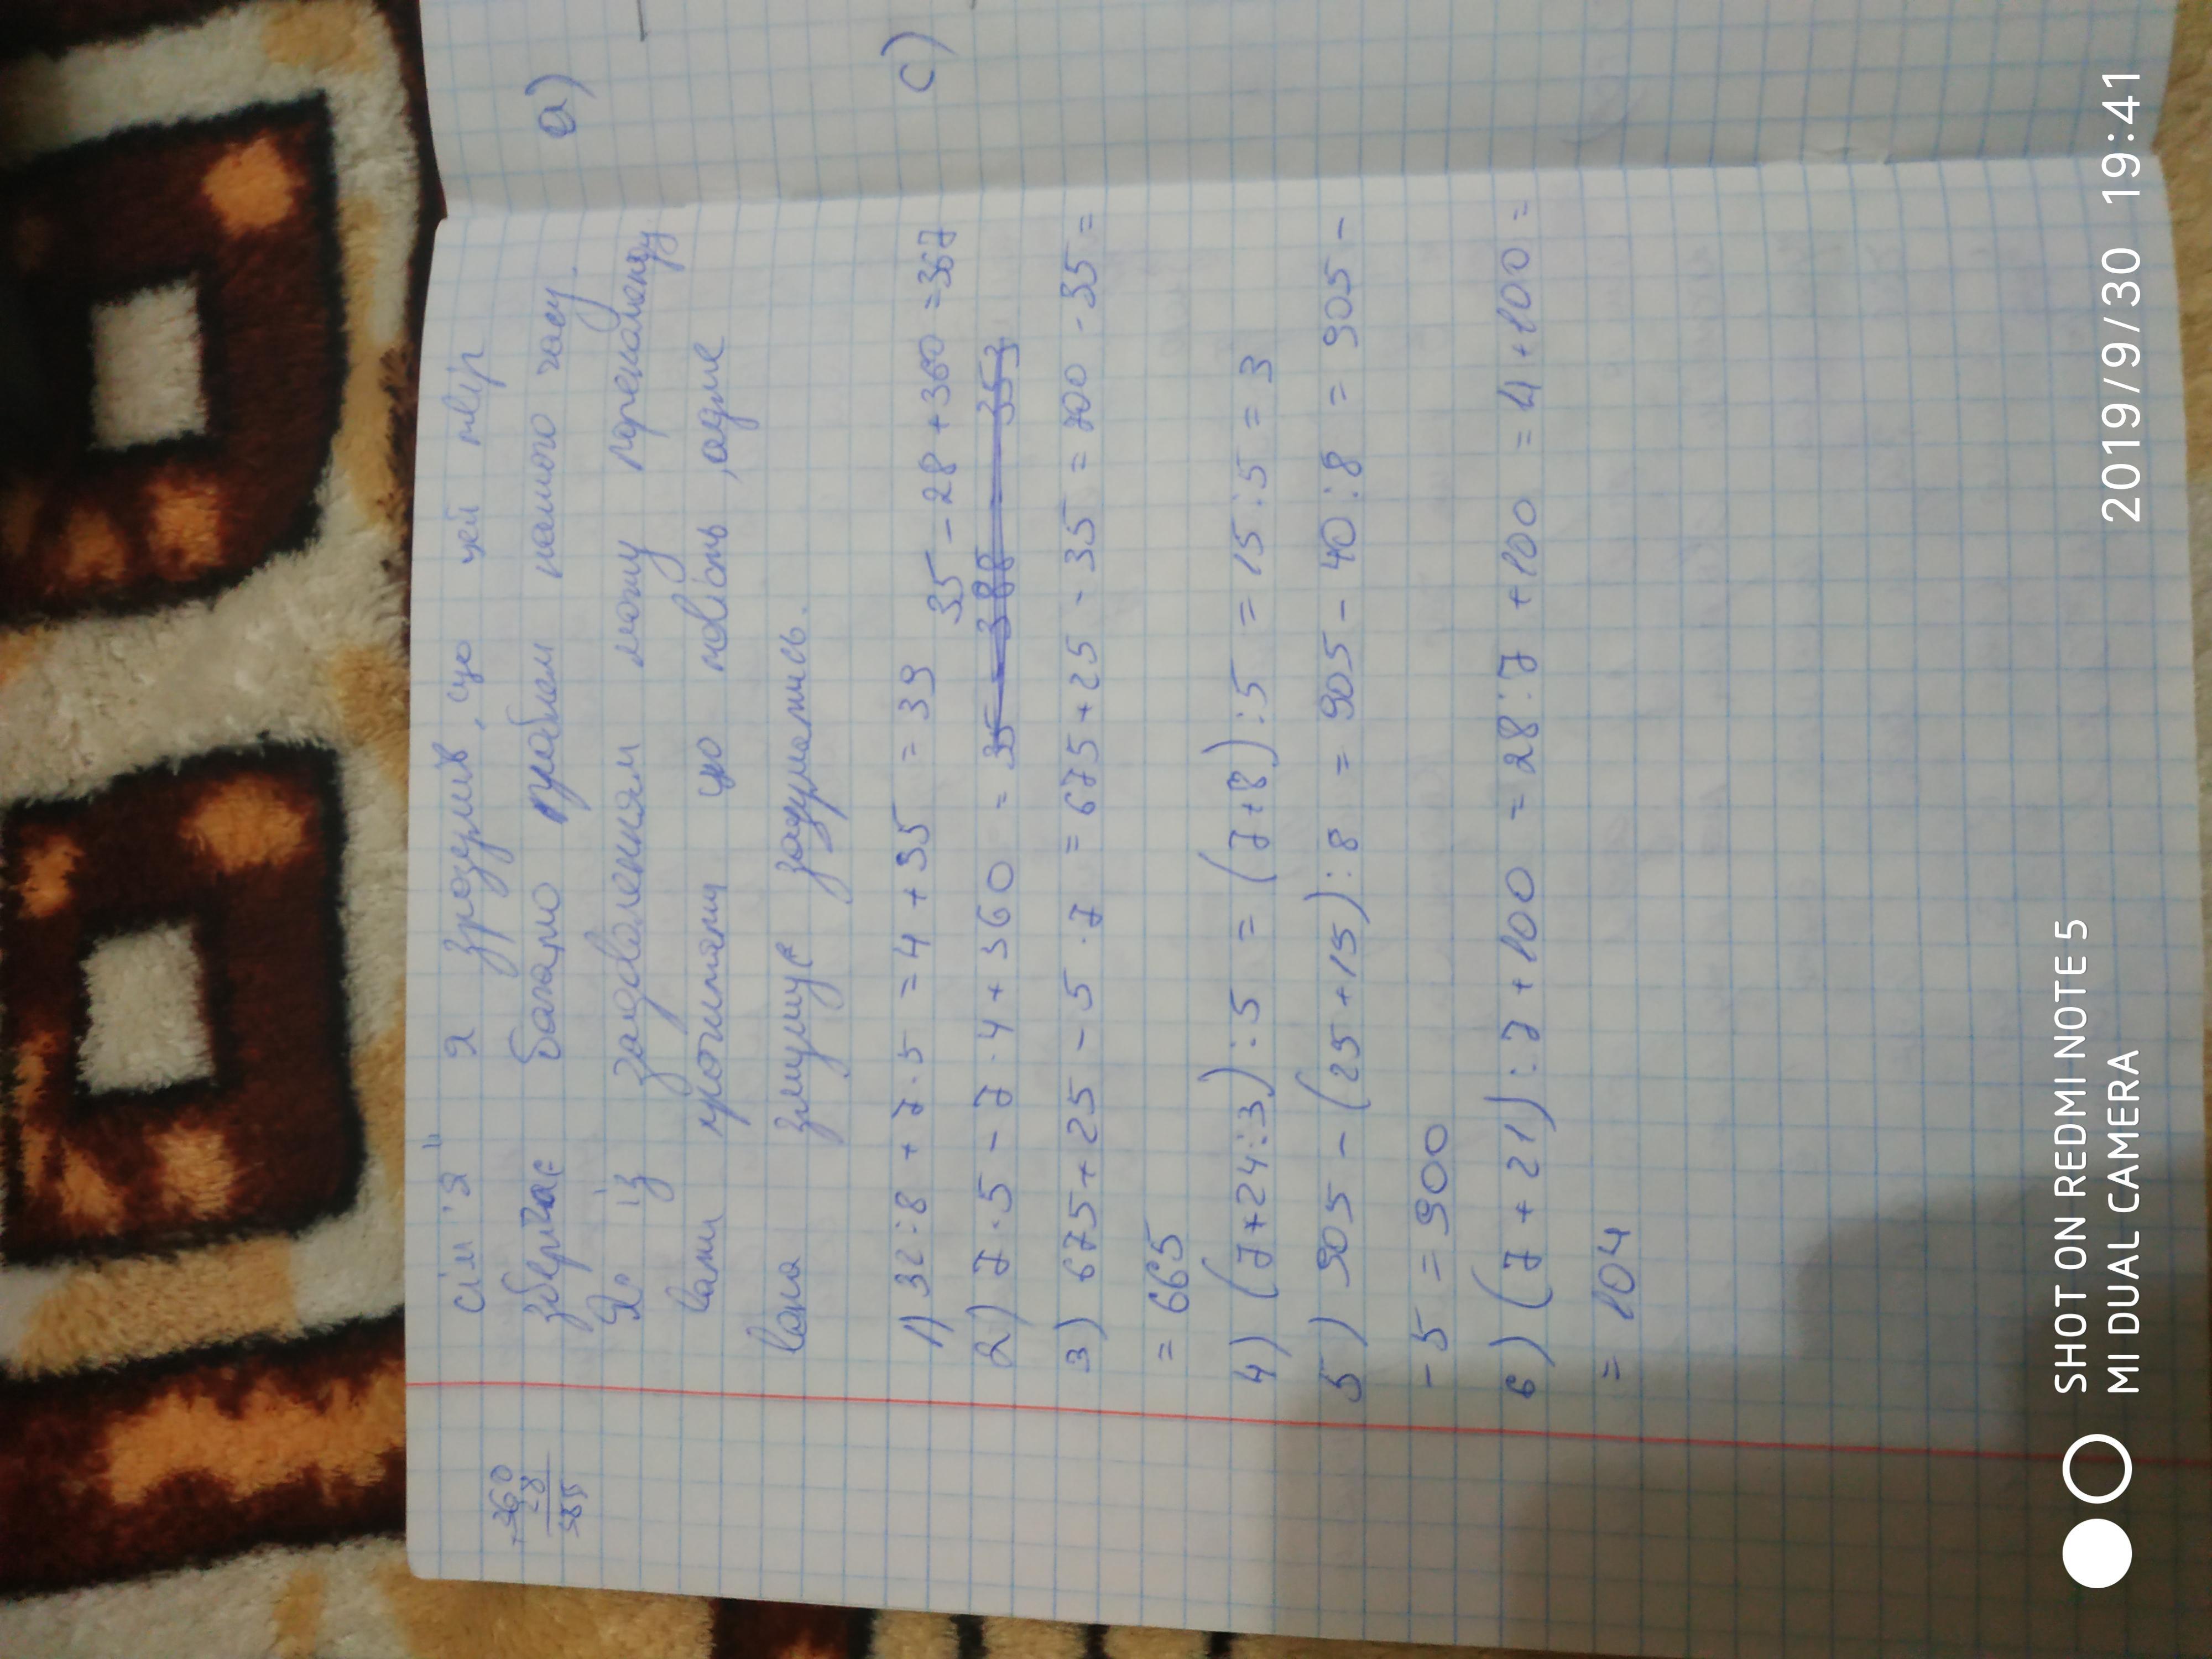 сім'я" я зрозумів, що цей твір
зберігає багато проблем нашого часу.
Я із задоволенням можу порекоменду
вати прочитати цю повість, адже
вона змушує задуматись.
1) 32:8 + 7·5 = 4 + 35 = 39
35 - 28 + 360 = 367
2) 7·5 - 7·4 + 360 = 35 - 388 = 353
3) 675 + 25 - 5·7 = 675 + 25 - 35 = 700 - 35 =
= 665
4) (7+24:3):5 = (7+8):5 = 15:5 = 3
5) 905 - (25+15):8 = 905 - 40:8 = 905 -
- 5 = 900
6) (7 + 21):7 + 100 = 28:7 + 100 = 4 + 100 =
= 104
360
28
а)
с)
SHOT ON REDMI NOTE 5
MI DUAL CAMERA
2019/9/30 19:41